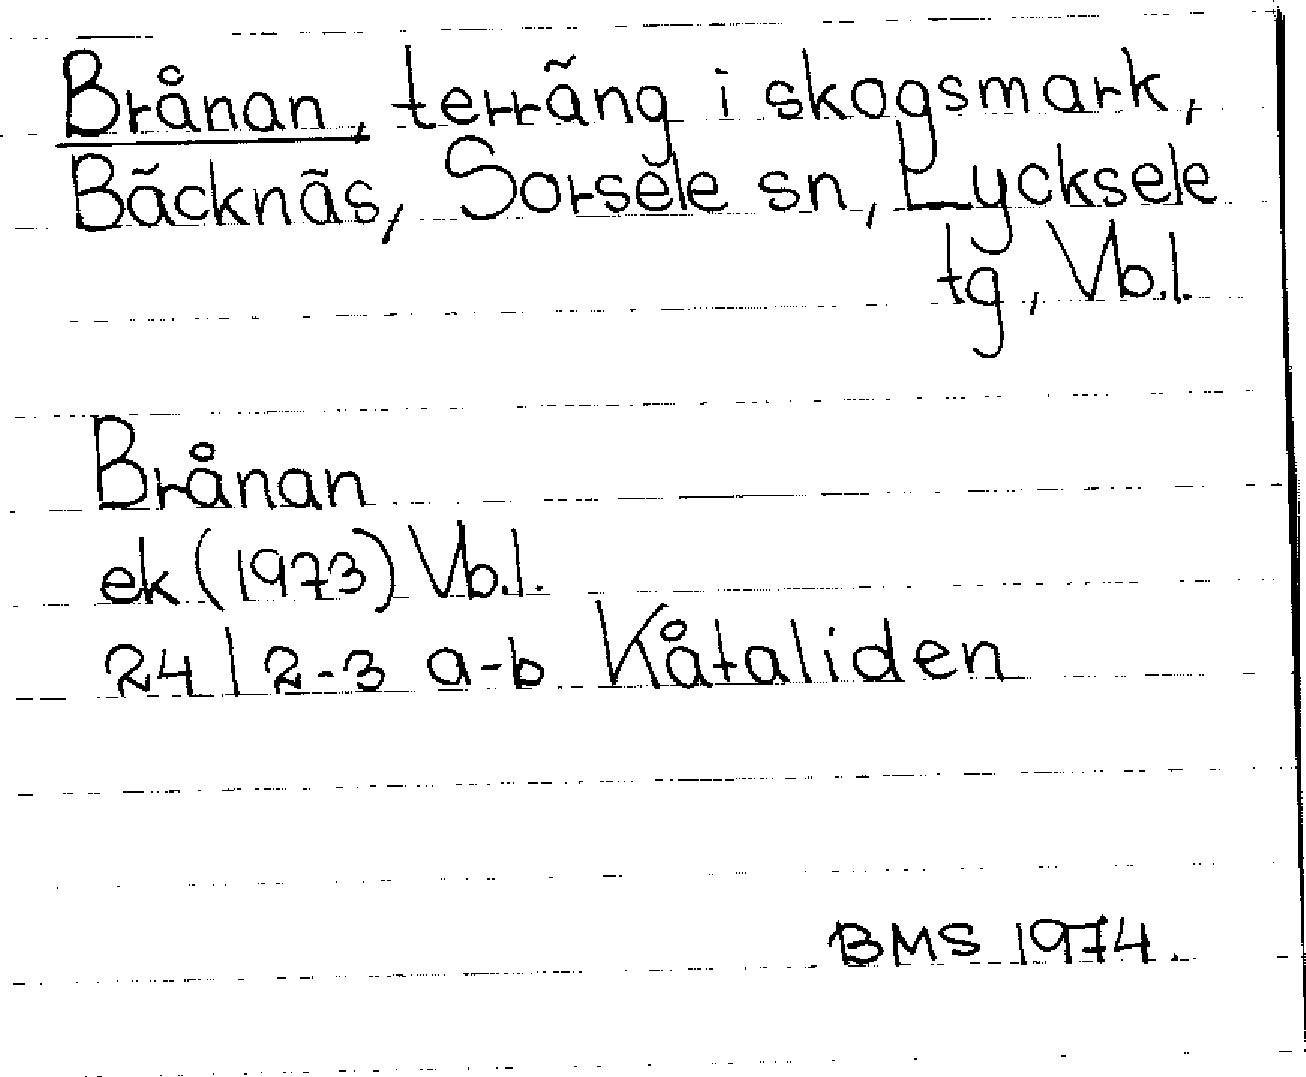 Brånan, terräng i skogsmark,
Bäcknäs, Sorsele sn, Lycksele
tg, Vb.l.
Brånan
ek (1973) Vb.l.
24 I 2-3 a-b Kåtaliden
BMS 1974.